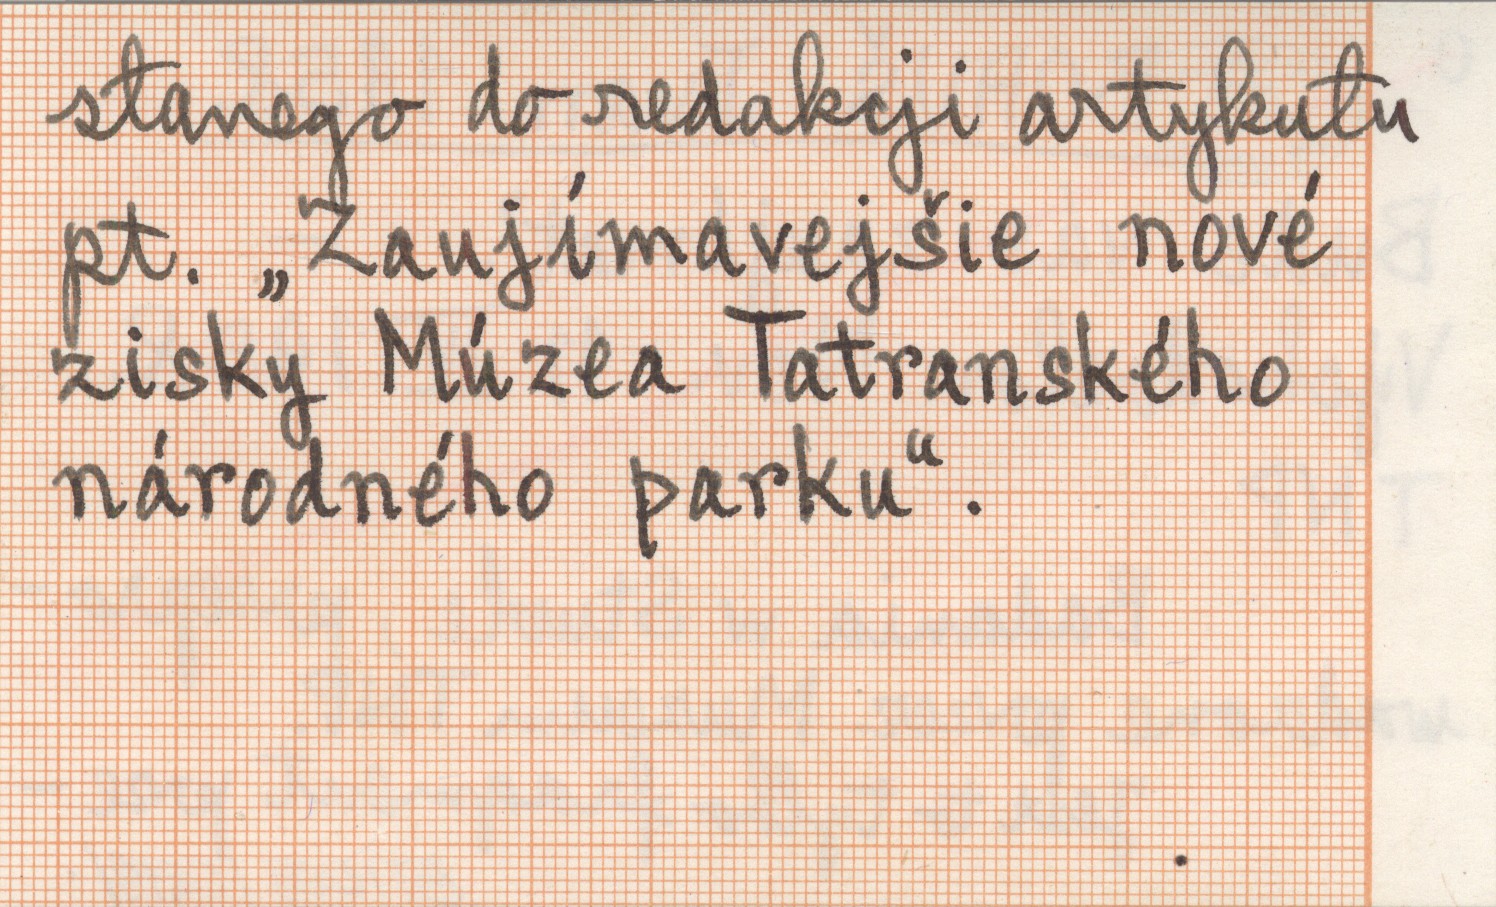 słanego do redakcji artykułu
pt. „Zaujímavejšie nové
zisky Múzea Tatranského
národného parku“.